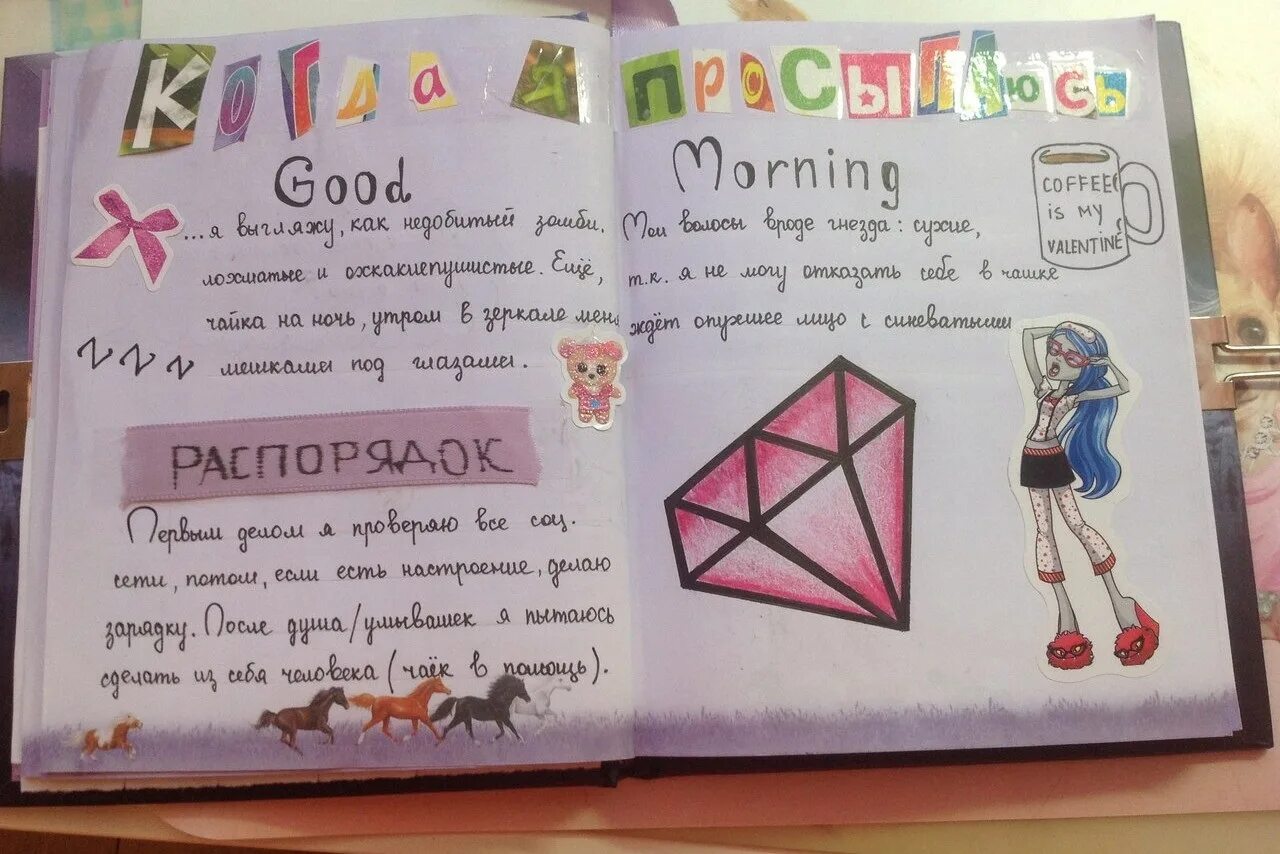 Когда я просыпаюсь
Good Morning
COFFEE
is my
VALENTINE
...я выгляжу, как недобитый зомби. Мои волосы вроде гнезда: сухие,
лохматые и охкакиепушистые. Ещё, т.к. я не могу отказать себе в чашке
чайка на ночь, утром в зеркале меня ждёт опухшее лицо с синеватыми
мешками под глазами.
ZZZ
РАСПОРЯДОК
Первым делом я проверяю все соц.
сети, потом, если есть настроение, делаю
зарядку. После душа/умывашек я пытаюсь
сделать из себя человека (чаёк в помощь).